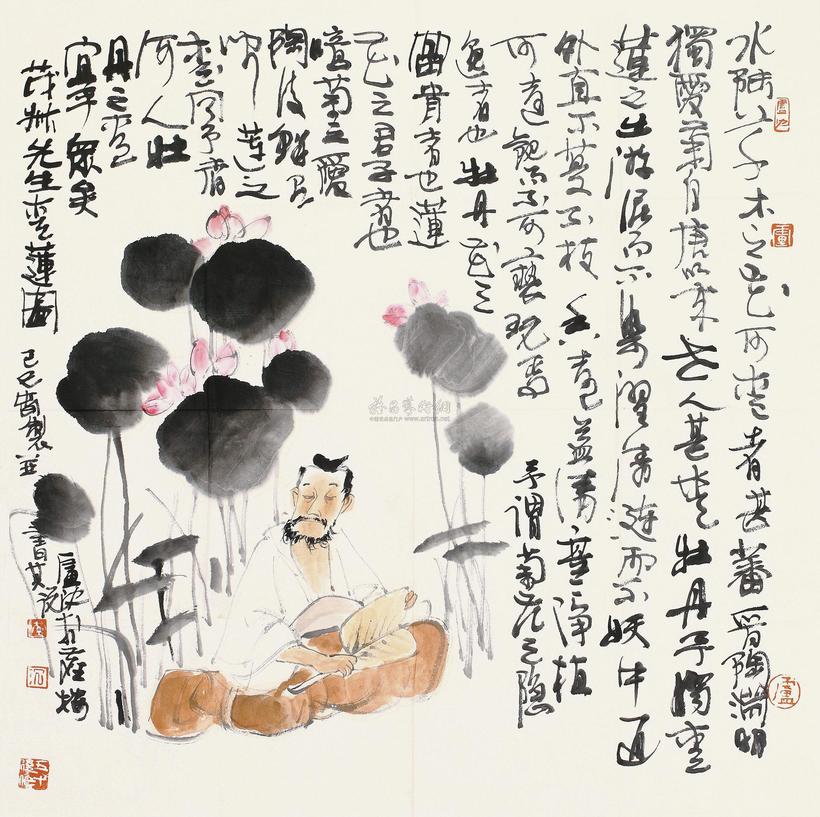 水陸草木之花可愛者甚蕃晉陶淵明
獨愛菊自唐以來世人甚愛牡丹予獨愛
蓮之出淤泥而不染濯清漣而不妖中通
外直不蔓不枝香遠益清亭亭淨植
可遠觀而不可褻玩焉予謂菊花之隱
逸者也牡丹花之
富貴者也蓮
花之君子者也
噫菊之愛
陶後鮮有
聞蓮之
愛同予者
何人牡
丹之愛
宜乎眾矣
茂叔先生愛蓮圖
己巳春製並書其說
盧沉
雅昌藝術網
www.artron.net